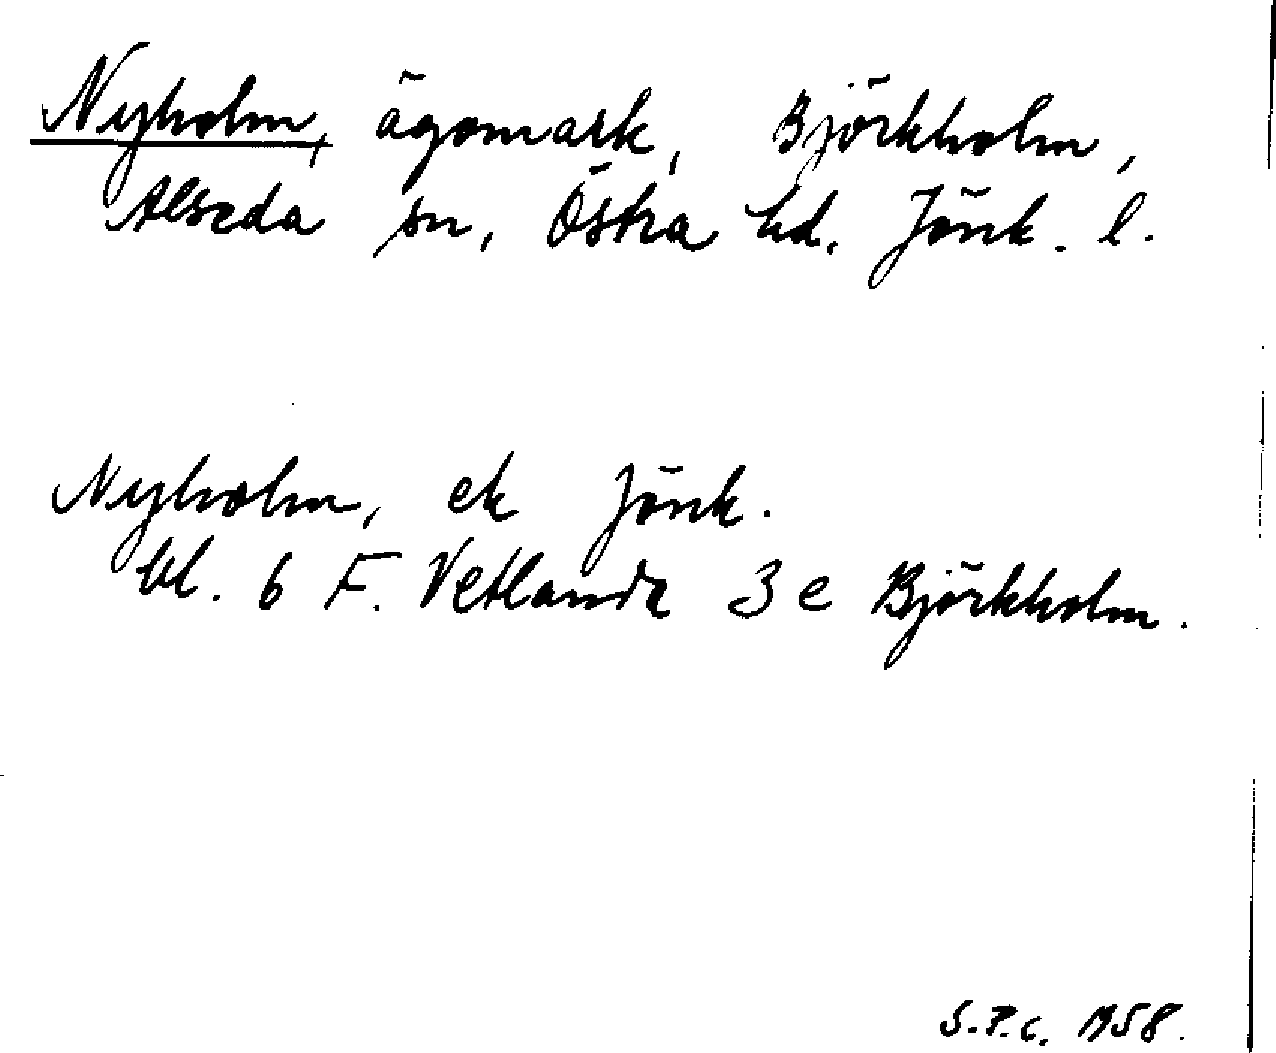 Nyholm, ägomark, Björkholm,
Alseda sn, Östra hd. Jönk. l.
Nyholm, ek Jönk.
bl. 6 F. Vetlanda 3 e Björkholm.
S.P.C. 1958.